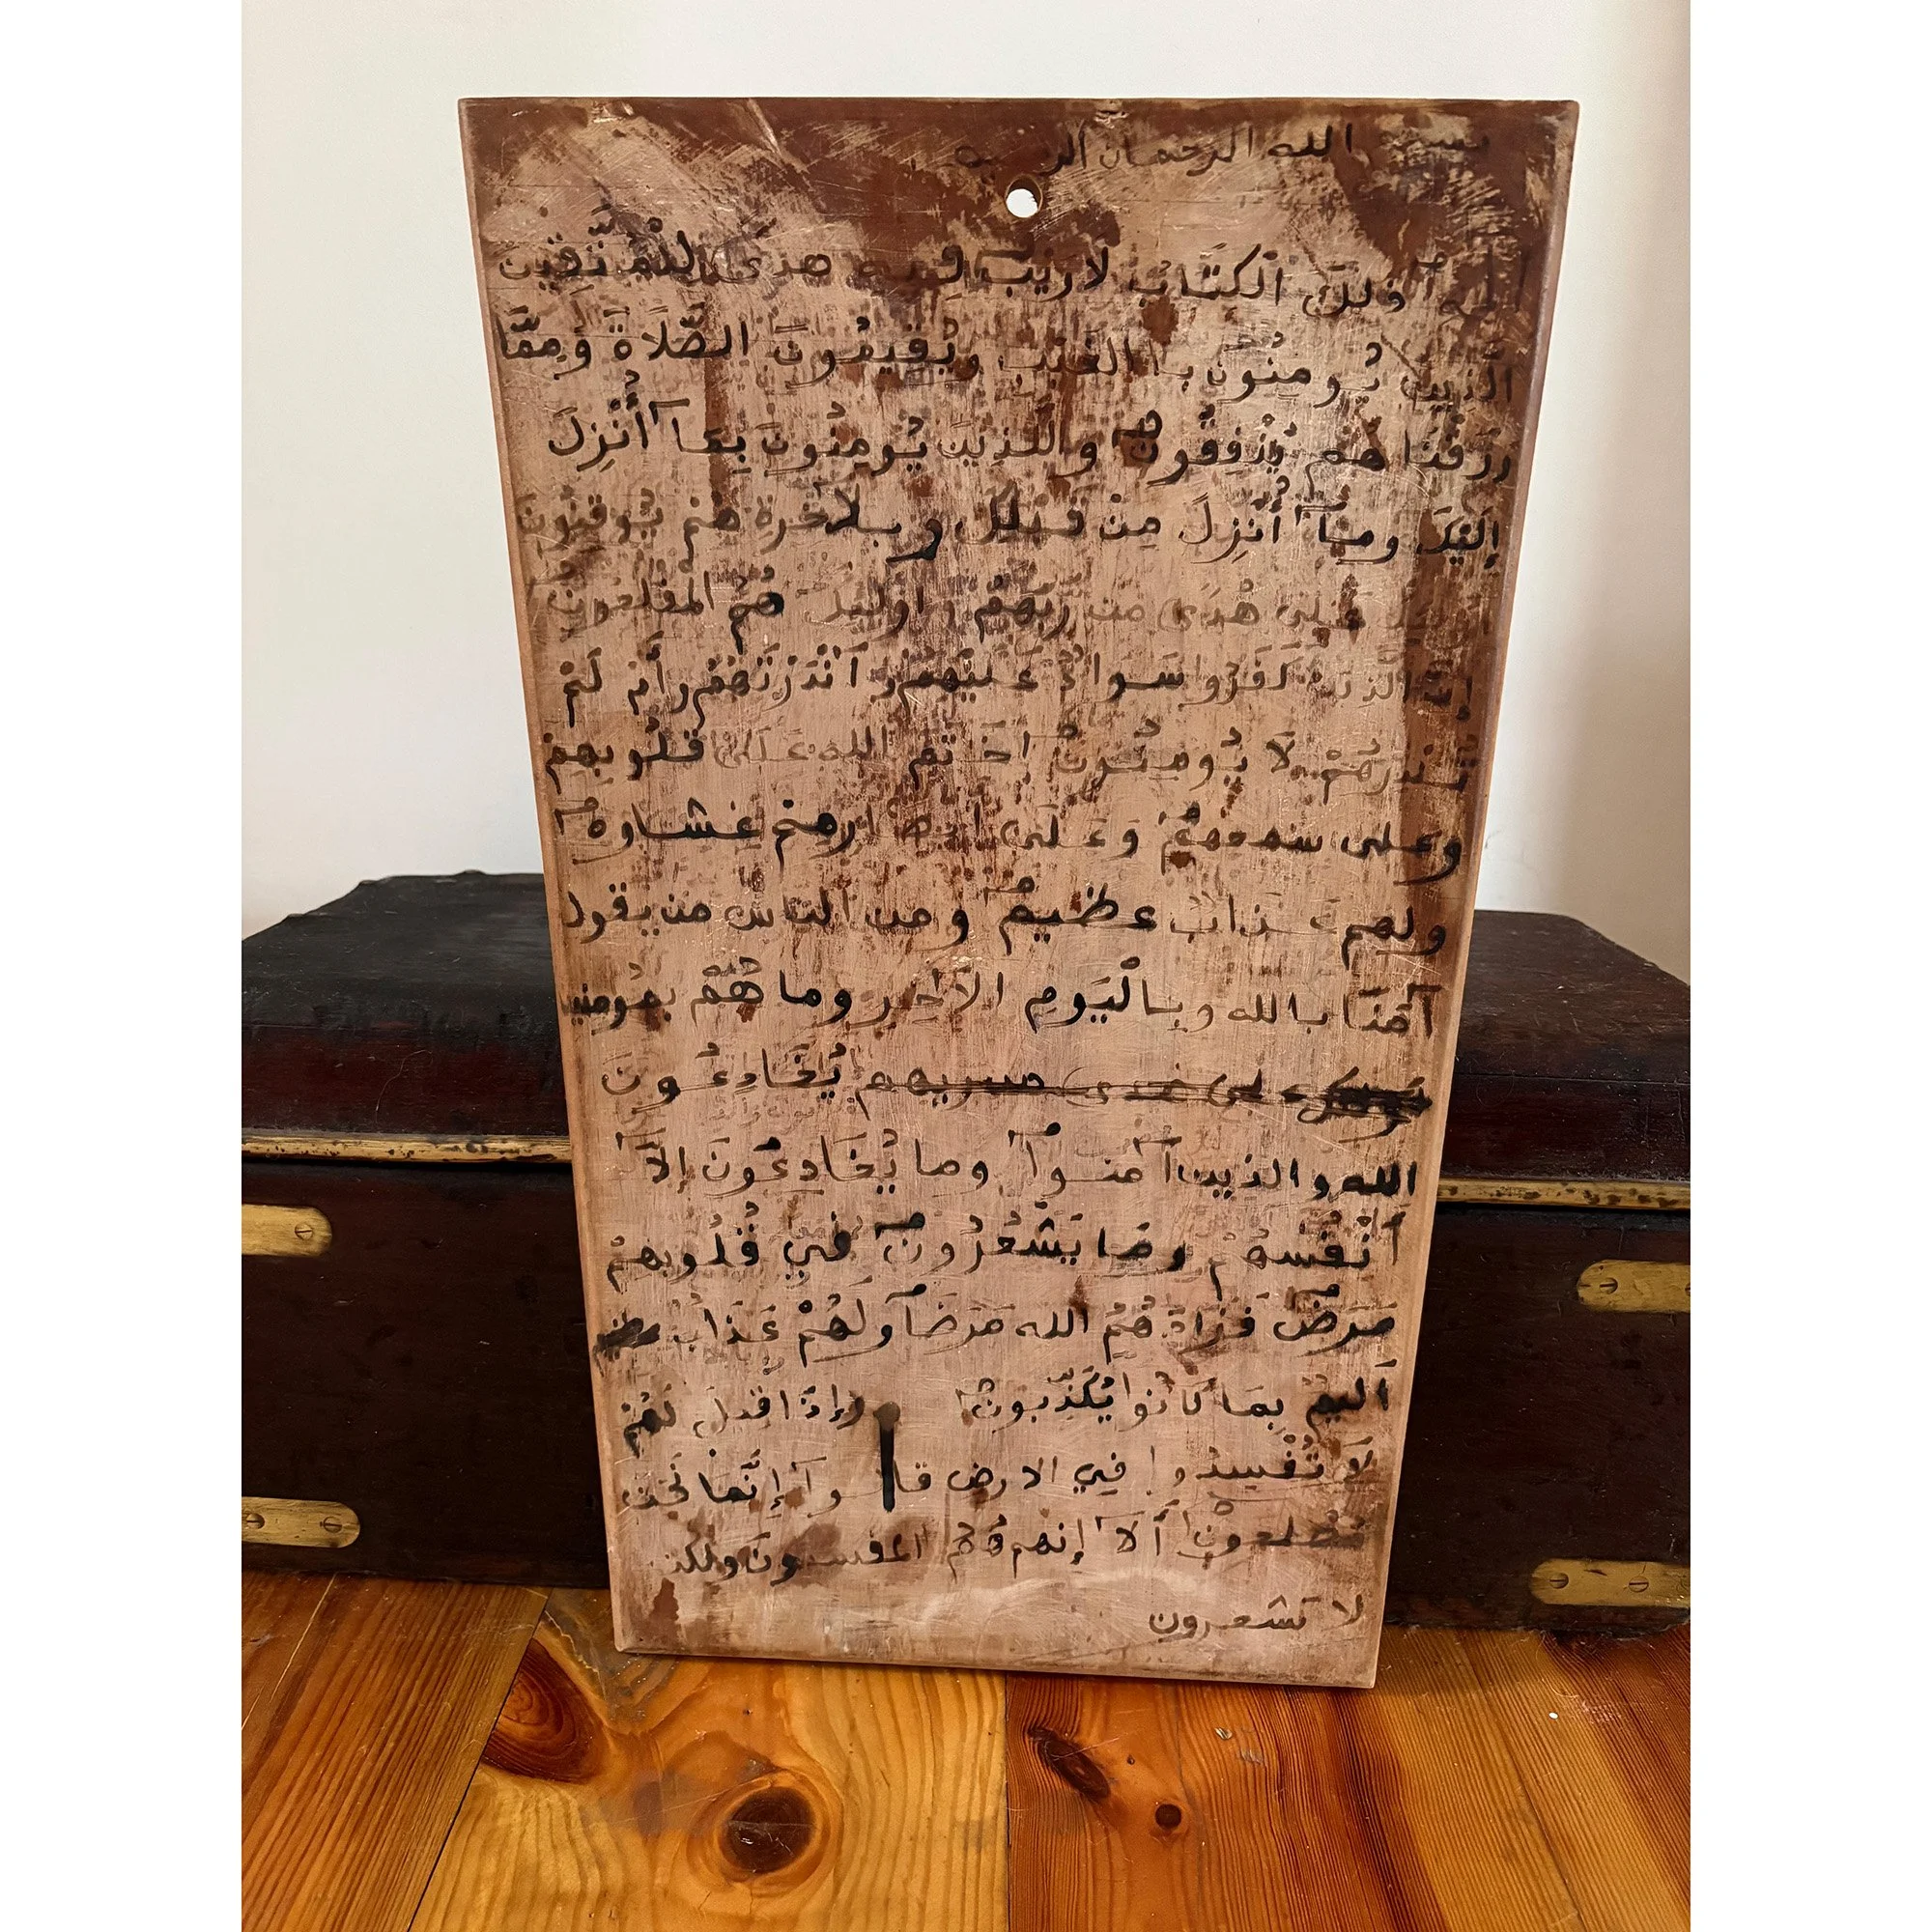 بسم الله الرحمان الر
الم ذلك الكتاب لا ريب فيه هدى للمتقين
الذين يومنون با الغيب ويقيمون الصلاة ومما
رزقنا هم ينفقون والذين يومنون بما أنزل
إليك وما أنزل من قبلك وبلاخرة هم يوقنون
على هدى من ربهم واوليك هم المفلحون
إن الذين كفرو سواء عليهم ءآنذرتهم أم لم
تنذرهم لا يومنون ختم الله على قلوبهم
وعلى سمعهم وعلى ابصارهم غشاوة
ولهم عذاب عظيم ومن الناس من يقول
آمنا بالله وباليوم الآخر وما هم بمومنين
يخادعون
الله والذين آمنوا وما يخادعون إلا
أنفسهم وما يشعرون في قلوبهم
مرض فزادهم الله مرضا ولهم عذاب
اليم بما كانوا يكذبون وإذا قيل لهم
لا تفسدوا في الارض قالوا إنما نحن
مصلحون ألا إنهم هم المفسدون ولكن
لا تشعرون